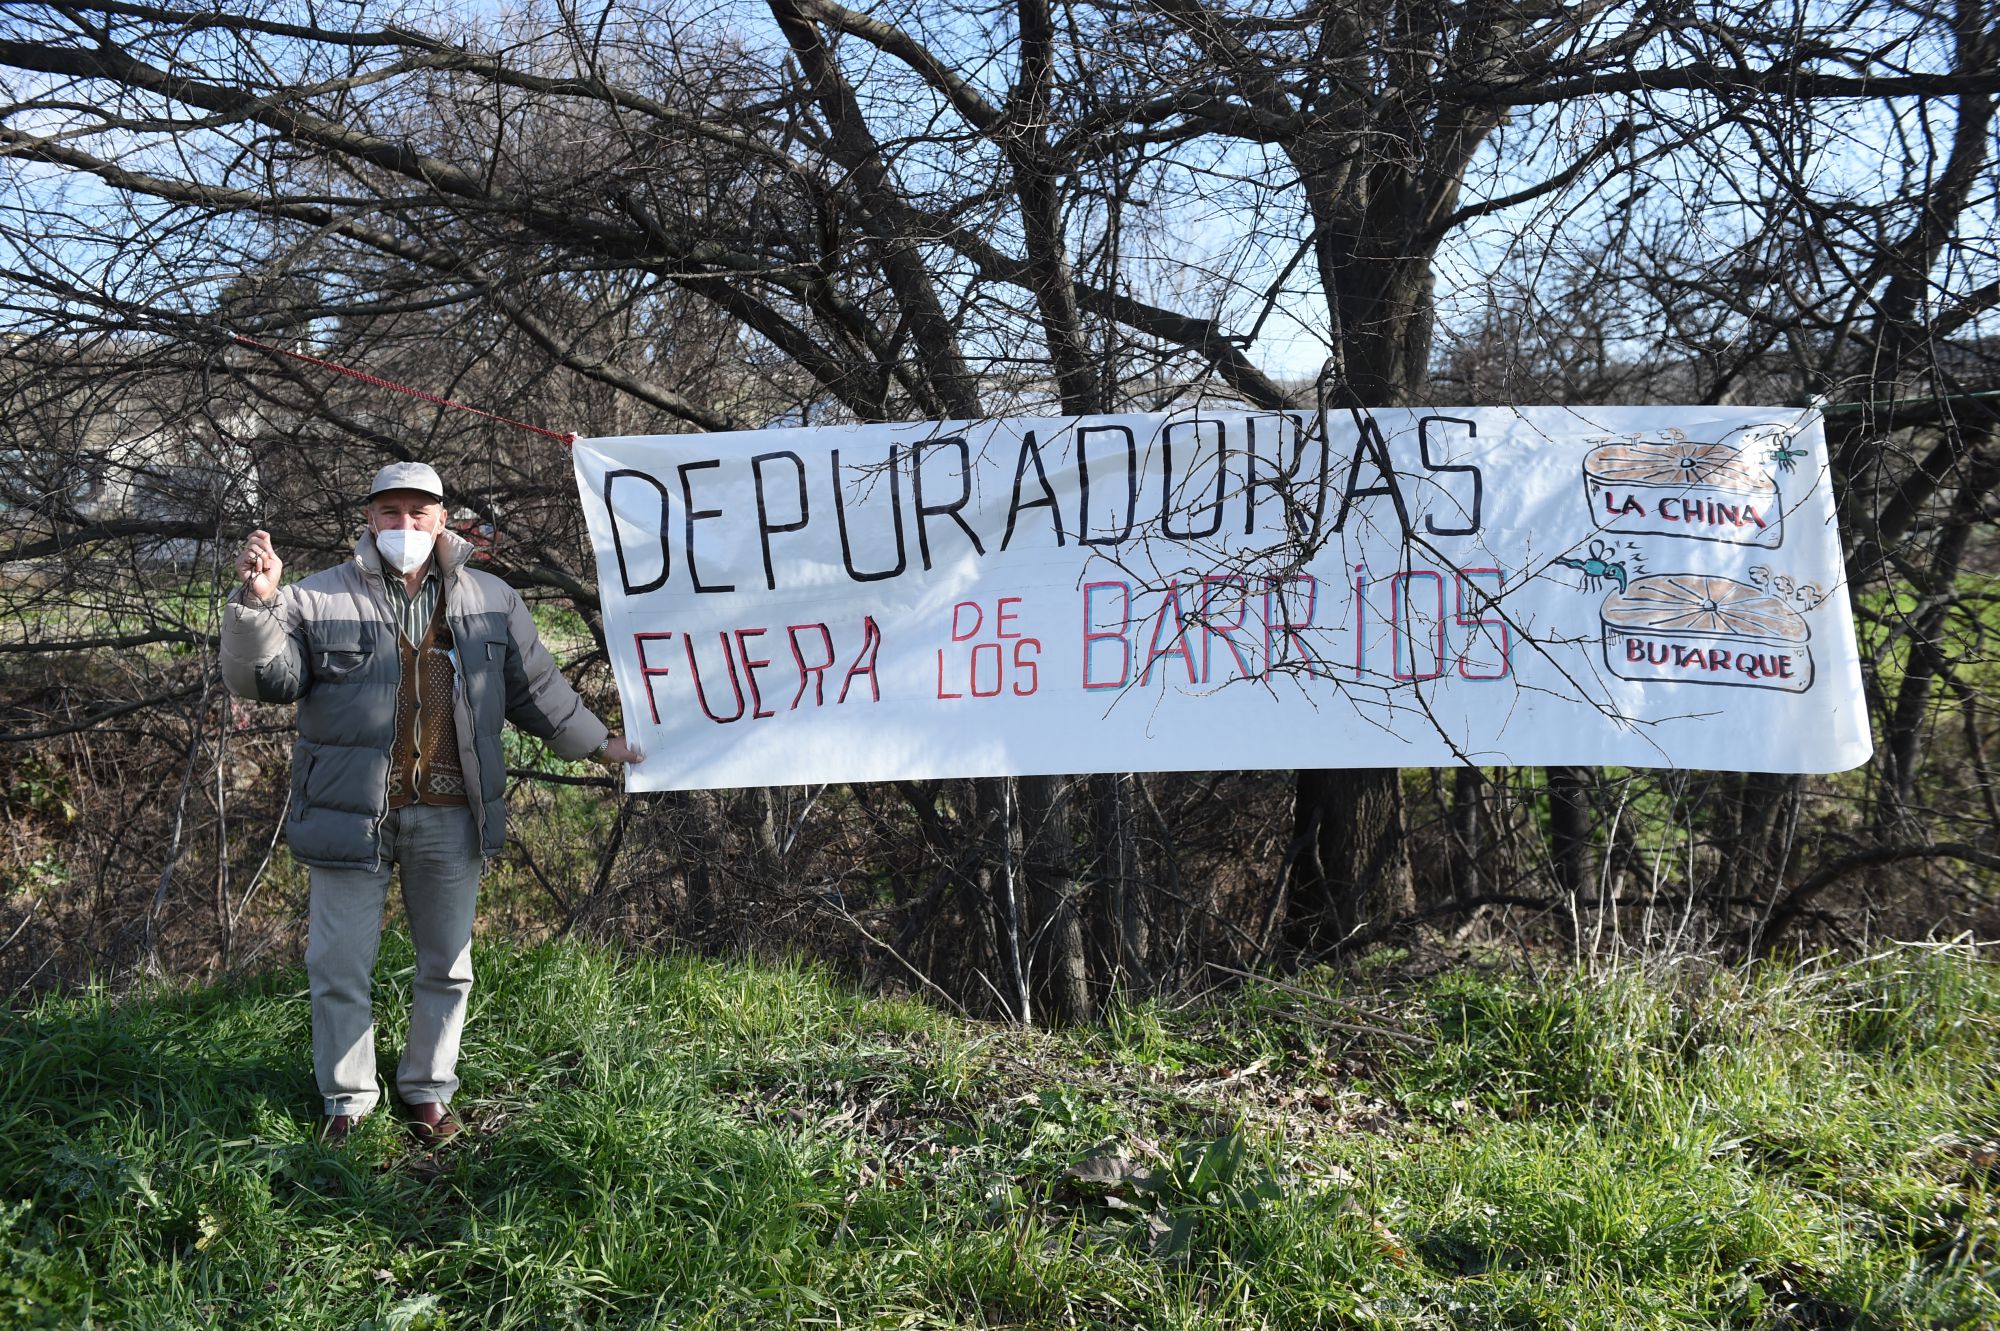 DEPURADORAS
FUERA DE LOS BARRIOS
LA CHINA
BUTARQUE